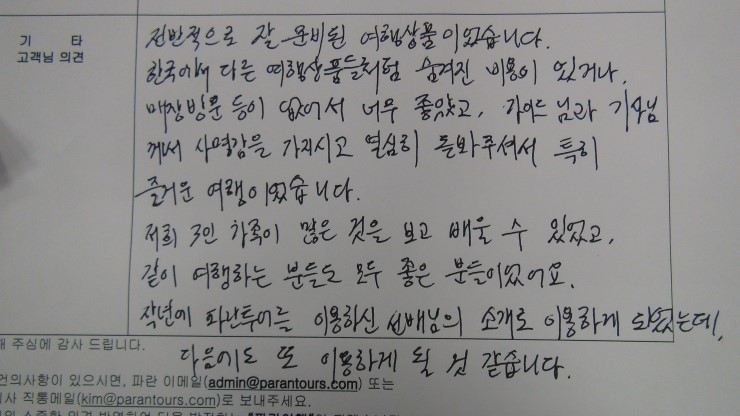 기 타
고객님 의견
전반적으로 잘 준비된 여행상품이었습니다.
한국에서 다른 여행상품들처럼 숨겨진 비용이 있거나,
매장방문 등이 없어서 너무 좋았고, 가이드님과 기사님
께서 사명감을 가지시고 열심히 돌봐주셔서 특히
즐거운 여행이었습니다.
저희 3인 가족이 많은 것을 보고 배울 수 있었고,
같이 여행하는 분들도 모두 좋은 분들이었어요.
작년에 파란투어를 이용하신 선배님의 소개로 이용하게 되었는데,
다음에도 또 이용하게 될 것 같습니다.
해 주심에 감사 드립니다.
건의사항이 있으시면, 파란 이메일(admin@parantours.com) 또는
사 직통메일(kim@parantours.com)로 보내주세요.